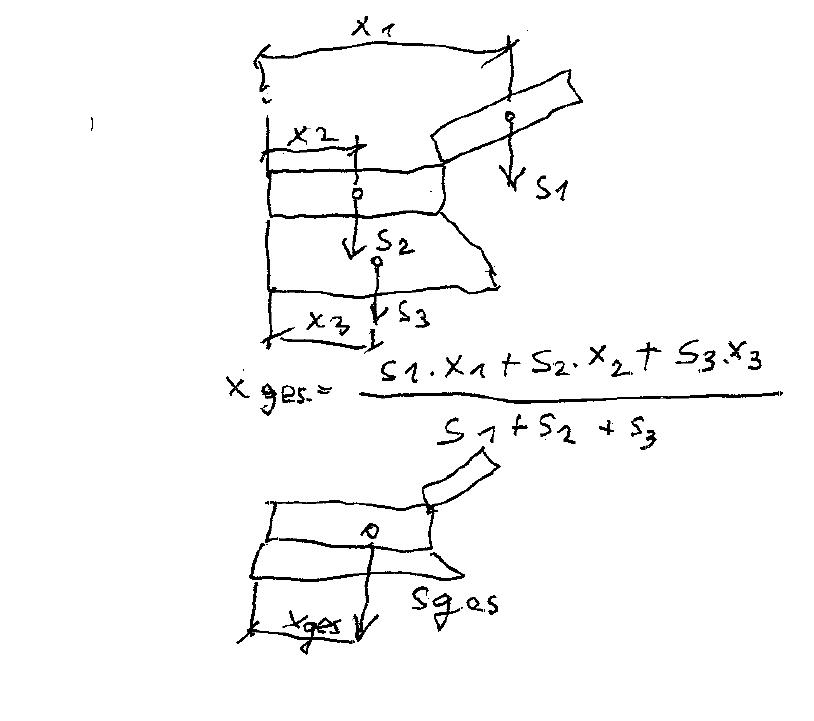 x1
x2
S1
S2
x3
S3
x ges. = S1 . x1 + S2 . x2 + S3 . x3
S1 + S2 + S3
Sges
xges